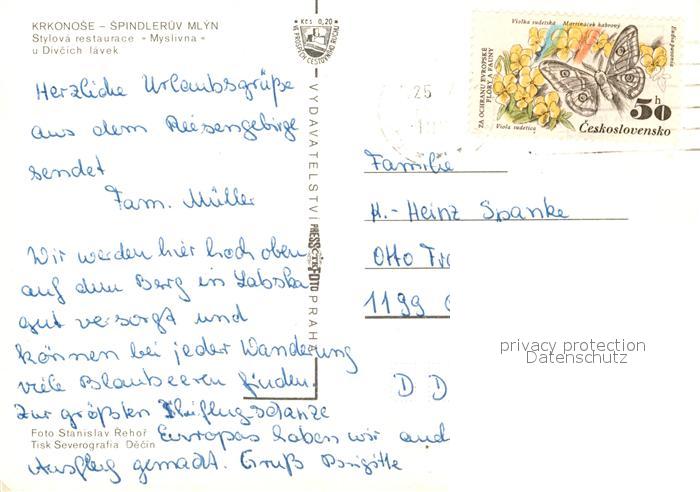 KRKONOŠE – ŠPINDLERŮV MLÝN
Stylová restaurace »Myslivna«
u Divčích lávek
Kčs 0,20
VE PROSPĚCH CESTOVNÍHO RUCHU
Herzliche Urlaubsgrüße
aus dem Riesengebirge
sendet
Fam. Müller
Wir werden hier hoch oben
auf dem Berg in Labska
gut versorgt und
können bei jeder Wanderung
viele Blaubeeren finden.
Zur größten Skiflugschanze
Europas haben wir auch
Ausflug gemacht. Gruß Brigitte
Foto Stanislav Řehoř
Tisk Severografia Děčín
VYDAVATELSTVÍ PRESSFOTO PRAHA
ČTK
25
Violka sudetská
Martináček habrový
Viola sudetica
ZA OCHRANU EVROPSKÉ
FLÓRY A FAUNY
50 h
Československo
Familie
H.-Heinz Spanke
Otto
1199
D D
privacy protection
Datenschutz